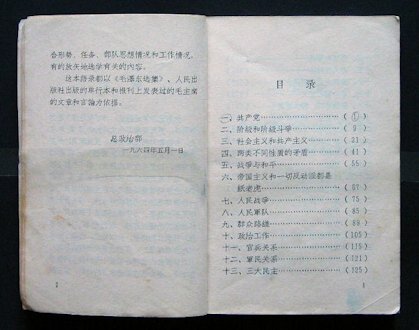 合形势、任务、部队思想情况和工作情况,
有的放矢地选学有关的内容。
这本语录都以《毛泽东选集》、人民出
版社出版的单行本和报刊上发表过的毛主席
的文章和言论为依据。
总政治部
一九六四年五月一日
目 录
一、共产党 ( 1 )
二、阶级和阶级斗争 ( 9 )
三、社会主义和共产主义 ( 21 )
四、两类不同性质的矛盾 ( 41 )
五、战争与和平 ( 55 )
六、帝国主义和一切反动派都是
纸老虎 ( 67 )
七、人民战争 ( 75 )
八、人民军队 ( 85 )
九、群众路线 ( 89 )
十、政治工作 ( 105 )
十一、官兵关系 ( 115 )
十二、军民关系 ( 121 )
十三、三大民主 ( 125 )
1